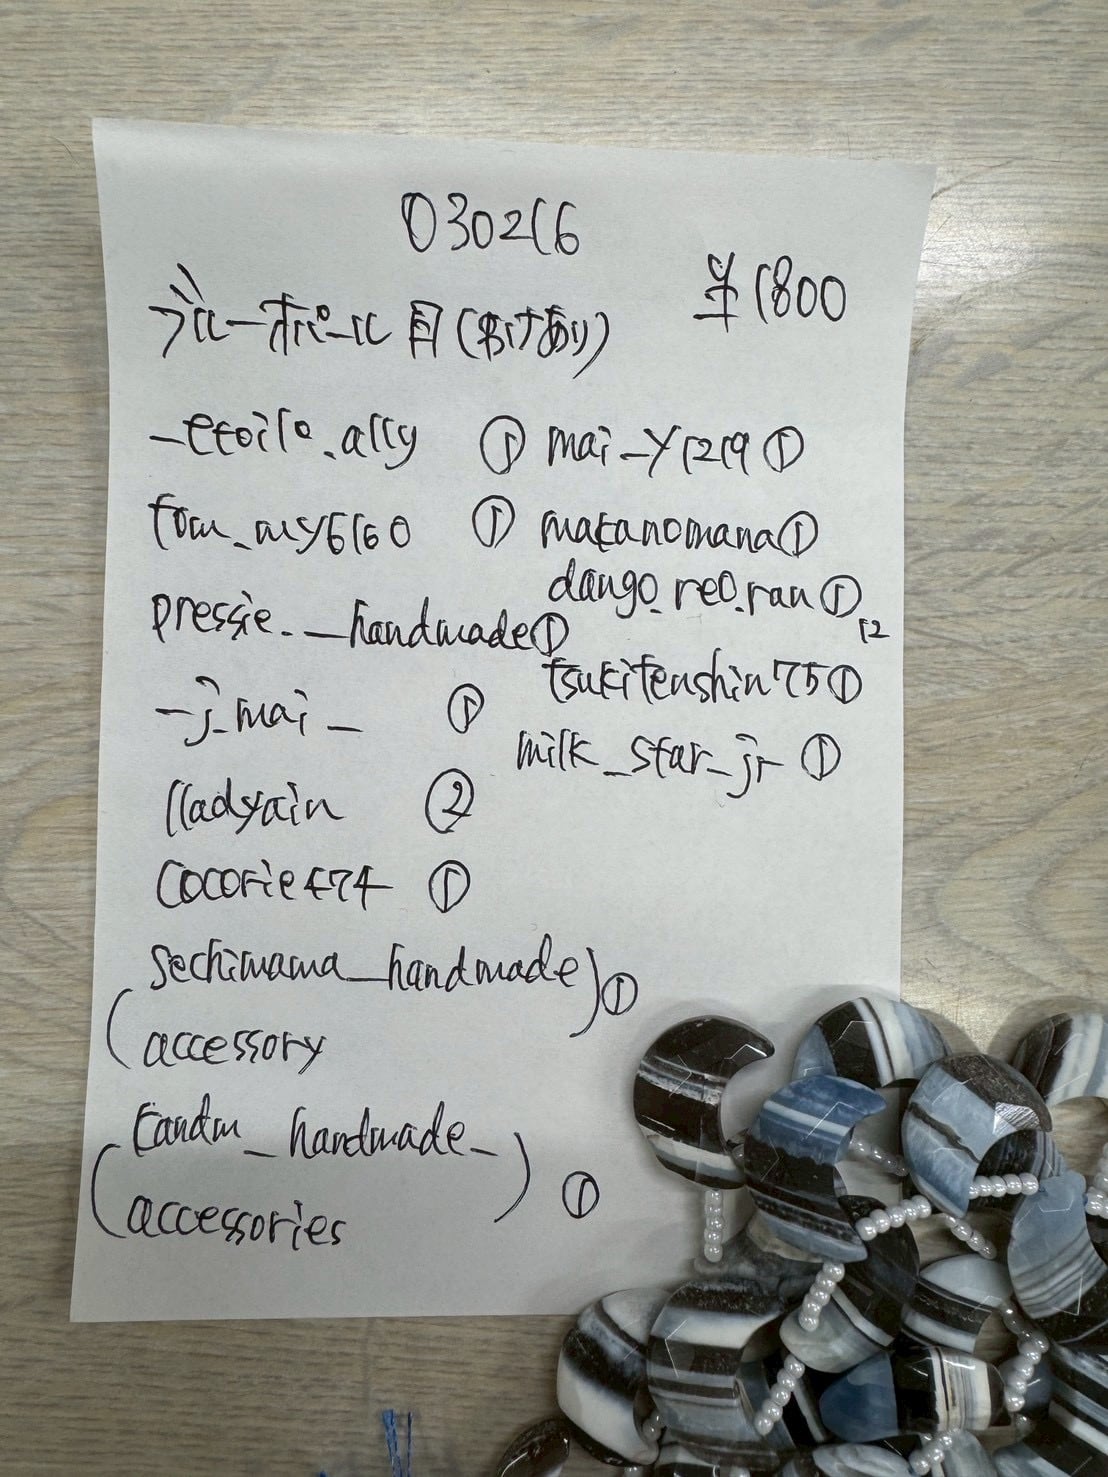 030216
ブルーオパール 月(糸付あり)
¥1800
_etoile.ally ①
tom_my6160 ①
pressie._handmade ①
_j_mai_ ①
lladyain ②
cocorie474 ①
(sechimama_handmade
accessory) ①
(tandm_handmade_
accessories) ①
mai_y1219 ①
makanomana ①
dango.reo.ran ①
12
tsukitenshin75 ①
milk_star_jr ①